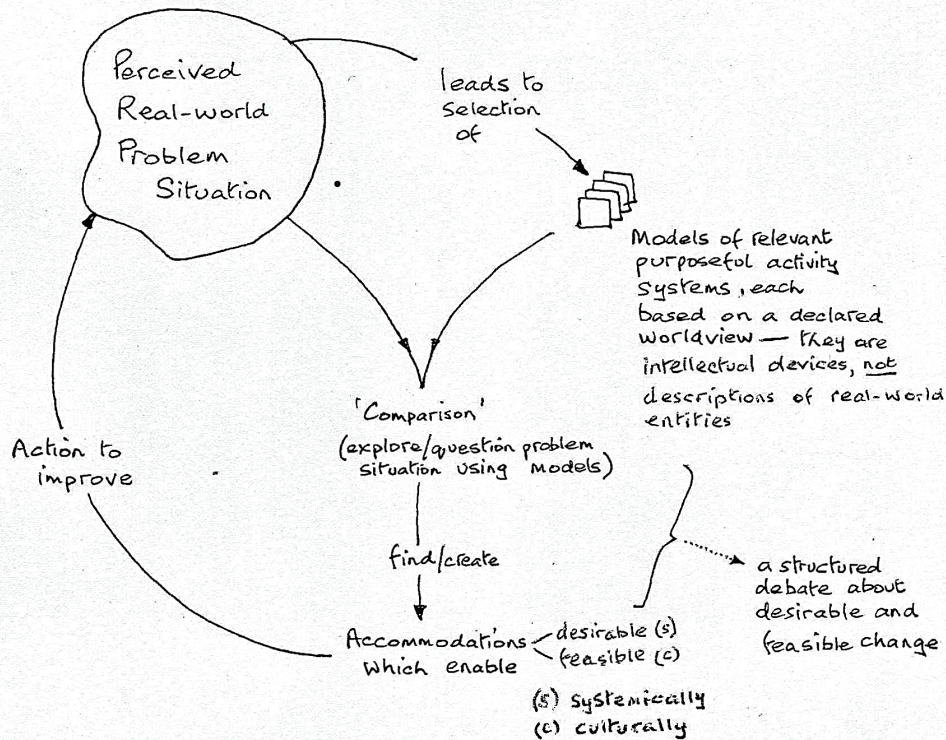 Perceived
Real-world
Problem
Situation
leads to
selection
of
Models of relevant
purposeful activity
systems, each
based on a declared
worldview — they are
intellectual devices, not
descriptions of real-world
entities
'Comparison'
(explore/question problem
situation using models)
Action to
improve
find/create
a structured
debate about
desirable and
feasible change
Accommodations
which enable
desirable (s)
feasible (c)
(s) systemically
(c) culturally